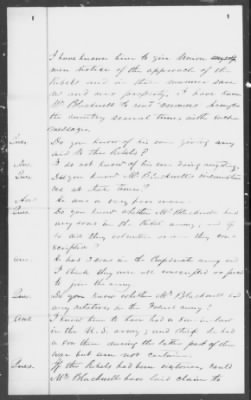 I have known him to give Union
men notice of the approach of the
Rebels and in that manner save
us and our property. I have known
Mr Blackwell to send
the country several times with such
messages.
Ques. Do you know of his ever giving any
aid to the Rebels?
Ans. I do not know of his ever doing any thing.
Ques. Did you know Mr Blackwell's circumstances
at that time?
Ans. He was a very poor man.
Ques. Do you know whether Mr Blackwell had
any sons in the Rebel army, and if
so did they volunteer or were they con-
scripted?
Ans. He had sons in the Confederate army and
I think they were all conscripted or forced
to join the army
Ques. Do you know whether Mr Blackwell had
any relatives in the Federal army?
Ans. I know him to have had a son in law
in the U.S. army, and think he had
a son there during the latter part of the
war but am not certain.
Ques. If the Rebels had been victorious could
Mr Blackwell have laid claim to